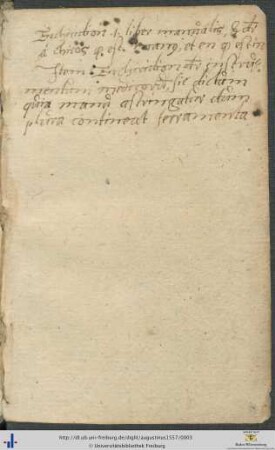 Enchiridion .i. liber manualis, et dr̄
à chiros q. est manus, et en q. est in
Item Enchiridion dr̄ instru-
mentum medicorū, sic dictum
quia manu astringatur dum
plura contineat ferramenta
http://dl.ub.uni-freiburg.de/diglit/augustinus1557/0003
© Universitätsbibliothek Freiburg